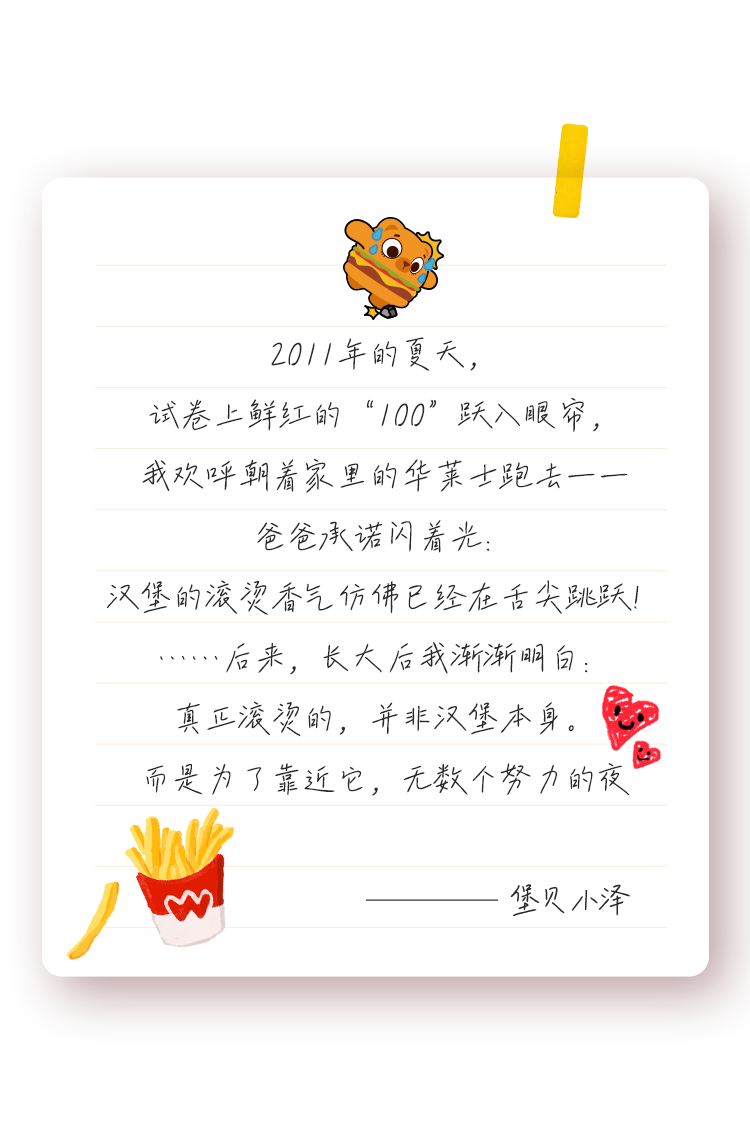 2011年的夏天，
试卷上鲜红的“100”跃入眼帘，
我欢呼朝着家里的华莱士跑去——
爸爸承诺闪着光：
汉堡的滚烫香气仿佛已经在舌尖跳跃！
……后来，长大后我渐渐明白：
真正滚烫的，并非汉堡本身。
而是为了靠近它，无数个努力的夜
———— 堡贝小泽